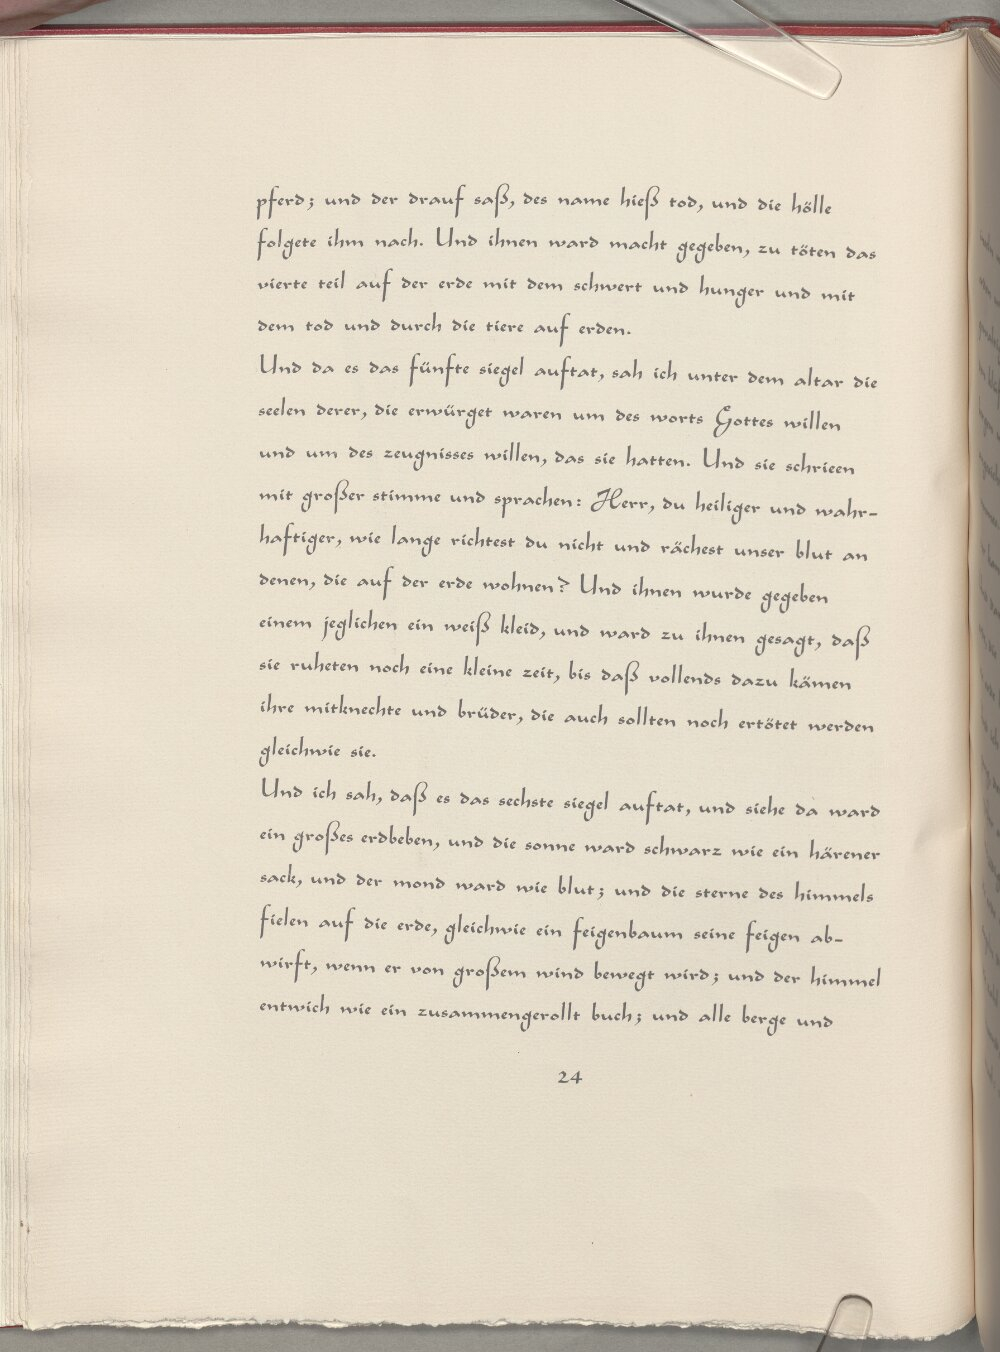 pferd; und der drauf saß, des name hieß tod, und die hölle
folgete ihm nach. Und ihnen ward macht gegeben, zu töten das
vierte teil auf der erde mit dem schwert und hunger und mit
dem tod und durch die tiere auf erden.
Und da es das fünfte siegel auftat, sah ich unter dem altar die
seelen derer, die erwürget waren um des worts Gottes willen
und um des zeugnisses willen, das sie hatten. Und sie schrieen
mit großer stimme und sprachen: Herr, du heiliger und wahr-
haftiger, wie lange richtest du nicht und rächest unser blut an
denen, die auf der erde wohnen? Und ihnen wurde gegeben
einem jeglichen ein weiß kleid, und ward zu ihnen gesagt, daß
sie ruheten noch eine kleine zeit, bis daß vollends dazu kämen
ihre mitknechte und brüder, die auch sollten noch ertötet werden
gleichwie sie.
Und ich sah, daß es das sechste siegel auftat, und siehe da ward
ein großes erdbeben, und die sonne ward schwarz wie ein härener
sack, und der mond ward wie blut; und die sterne des himmels
fielen auf die erde, gleichwie ein feigenbaum seine feigen ab-
wirft, wenn er von großem wind bewegt wird; und der himmel
entwich wie ein zusammengerollt buch; und alle berge und
24